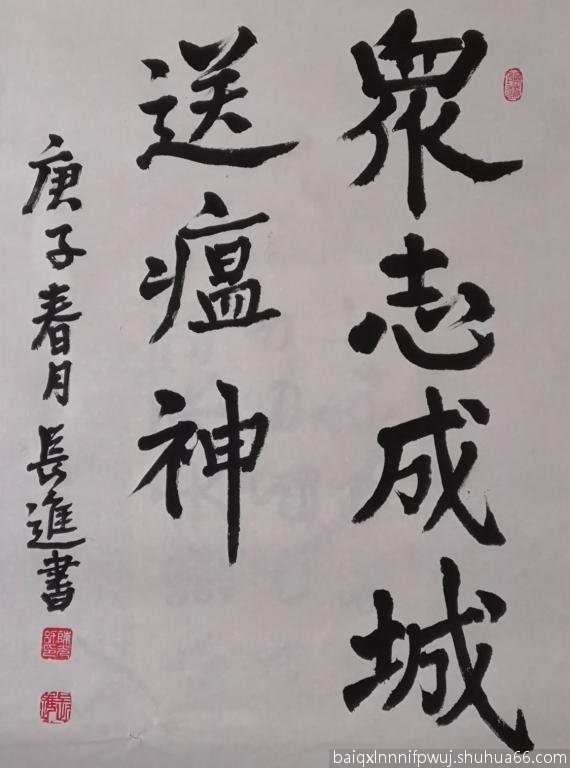 衆志成城
送瘟神
庚子春月 長進書
baiqxlnnnifpwuj.shuhua66.com